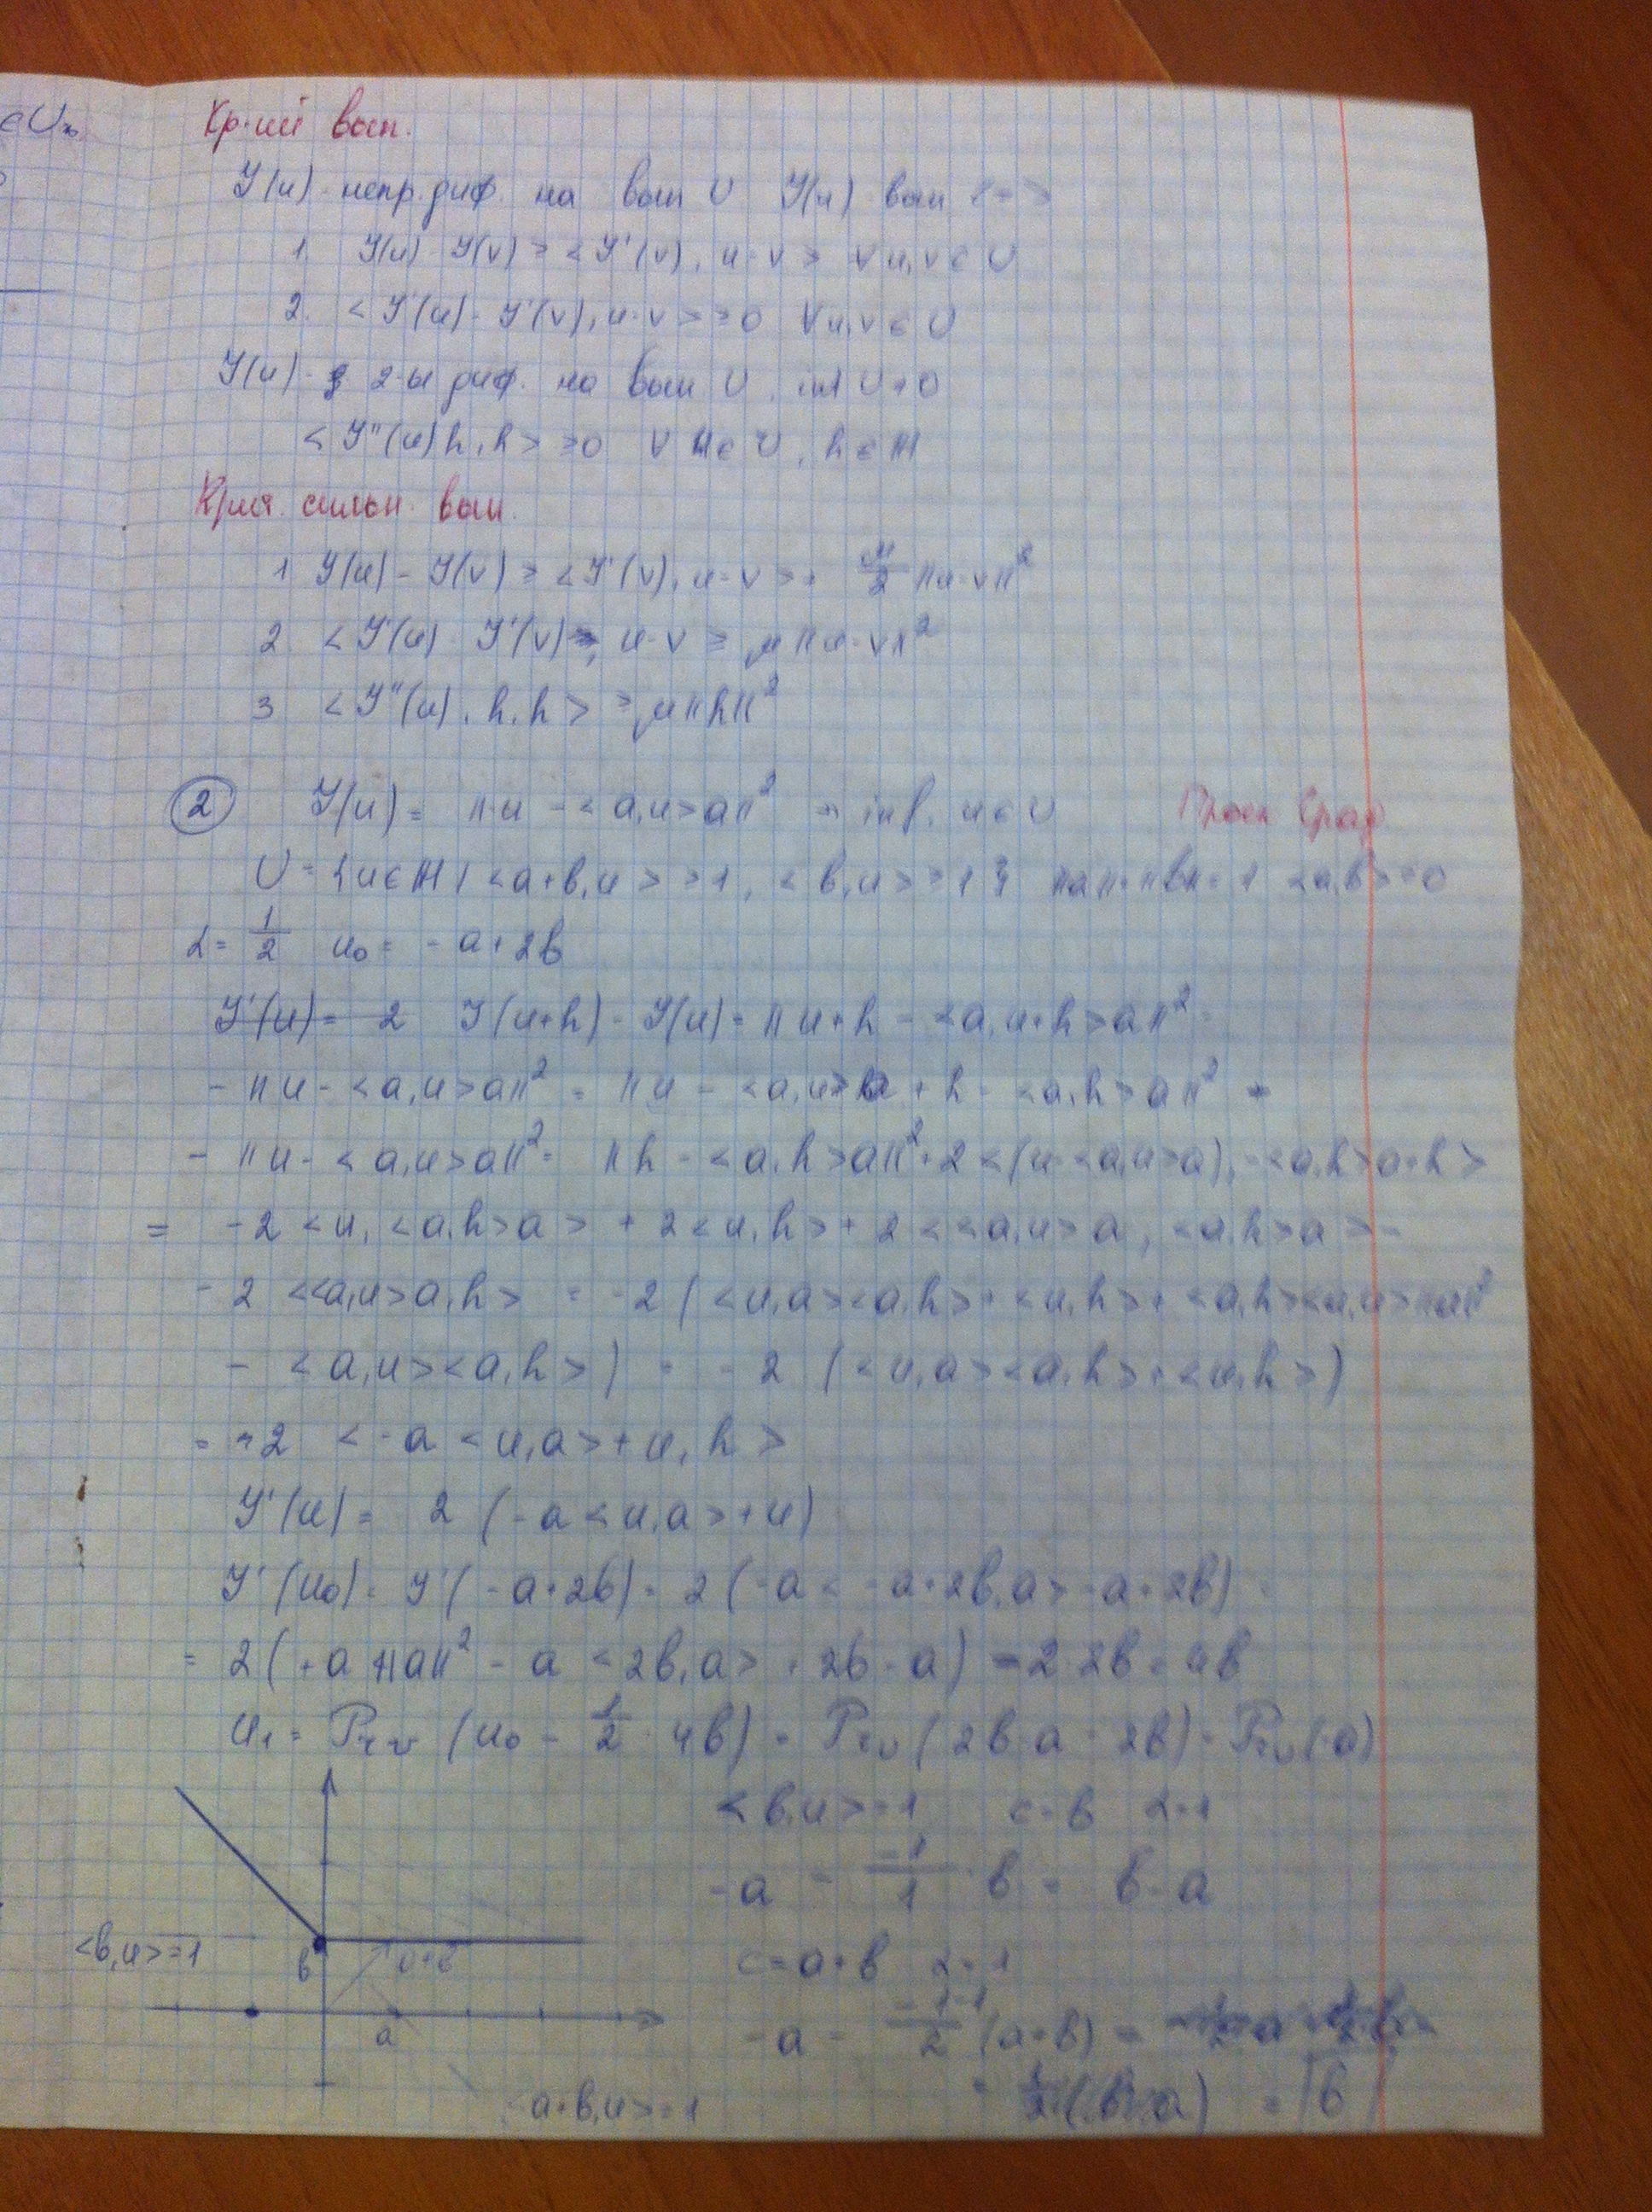 ∈U∞
Кр-ий вып.
J(u) - непр. диф. на вып U J(u) - вып <=>
1. J(u) - J(v) ≥ <J'(v), u-v> ∀u,v∈U
2. <J'(u) - J'(v), u-v> ≥0 ∀u,v∈U
J(u) - 2-ы диф. на вып U, int U≠0
<J''(u)h,h> ≥0 ∀u∈U, h∈H
Крит. сильн. вып.
1 J(u) - J(v) ≥ <J'(v), u-v> + μ/2 ||u-v||²
2. <J'(u) - J'(v), u-v ≥ μ||u-v||²
3 <J''(u), h,h> ≥ μ||h||²
② J(u) = ||u - <a,u>a||² → inf, u∈U Проек Град
U = {u∈H | <a+b,u> ≥1, <b,u> ≥1} ||a||=||b||=1 <a,b>=0
α = 1/2 u₀ = -a+2b
J'(u) = 2 J(u+h) - J(u) = ||u+h - <a,u+h>a||² -
- ||u - <a,u>a||² = ||u - <a,u>a + h - <a,h>a||² -
- ||u - <a,u>a||² = ||h - <a,h>a||² + 2<(u-<a,u>a), -<a,h>a+h>
= -2<u,<a,h>a> + 2<u,h> + 2<<a,u>a, <a,h>a> -
- 2 <<a,u>a,h> = -2(<u,a><a,h> + <u,h> + <a,h><a,u>||a||²
- <a,u><a,h>) = -2 (<u,a><a,h>+<u,h>)
= 2 <-a<u,a>+u, h>
J'(u) = 2 (-a<u,a>+u)
J'(u₀) = J'(-a+2b) = 2(-a<-a+2b,a> -a+2b) =
= 2(+a||a||² - a<2b,a> + 2b-a) = 2·2b = 4b
u₁ = Pr_U (u₀ - 1/2 · 4b) = Pr_U (2b-a-2b) = Pr_U(-a)
<b,u>=1 c=b α=1
-a - -1/1 · b = b-a
<b,u>=1 b a+b
c=a+b α=1
a
-a - -1-1/2 (a+b) =
<a+b,u>=1
= b